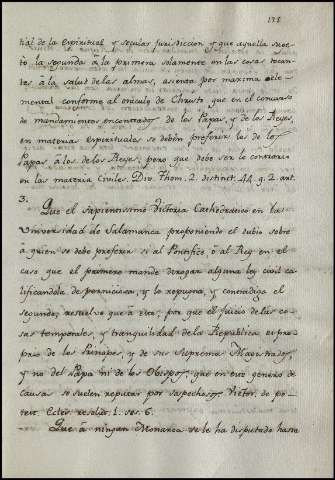 tial de la Espiritual y secular Jurisdiccion y que aquella suce-
tò la segunda à la primera solamente en las cosas tocan-
tes à la salud de las almas, asienta por maxima ele-
mental conforme al oraculo de Christo que en el concurso
de mandamientos encontrados de los Papas, y de los Reyes,
en materias espirituales se deben preferir las de los
Papas à los de los Reyes; pero que debe ser lo contrario
en las materias Civiles. Div. Thom. 2. distinct. 44. q. 2. art.
3.
Que el sapientissimo Victoria Cathedratico en la
Universidad de Salamanca proponiendo el dubio sobre
à quien se debe preferir si al Pontifice ò al Rey en el
caso que el primero mande derogar alguna ley civil ca-
lificandola de perniciosa, y lo repugna, y contradiga el
segundo; resuelve que à este; por que el Juicio de las co-
sas temporales, y tranquilidad de la Republica es pro-
prio de los Principes, y de sus Supremos Magistrados,
y no del Papa ni de los Obispos: que en este genero de
causas se suelen reputar por sospechosos. Victor. de po-
test. Ecles. resolut. 1. ses. 6.
Que à ningun Monarca se le ha disputado hasta